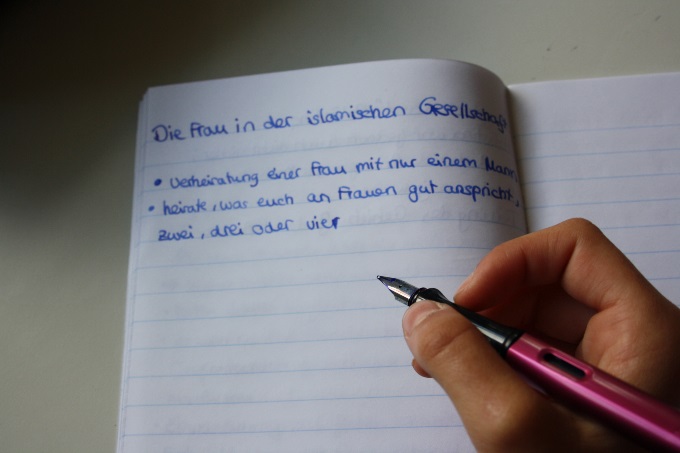 Die Frau in der islamischen Gesellschaft
• Verheiratung einer Frau mit nur einem Mann
• heirate, was euch an Frauen gut anspricht,
zwei, drei oder vier